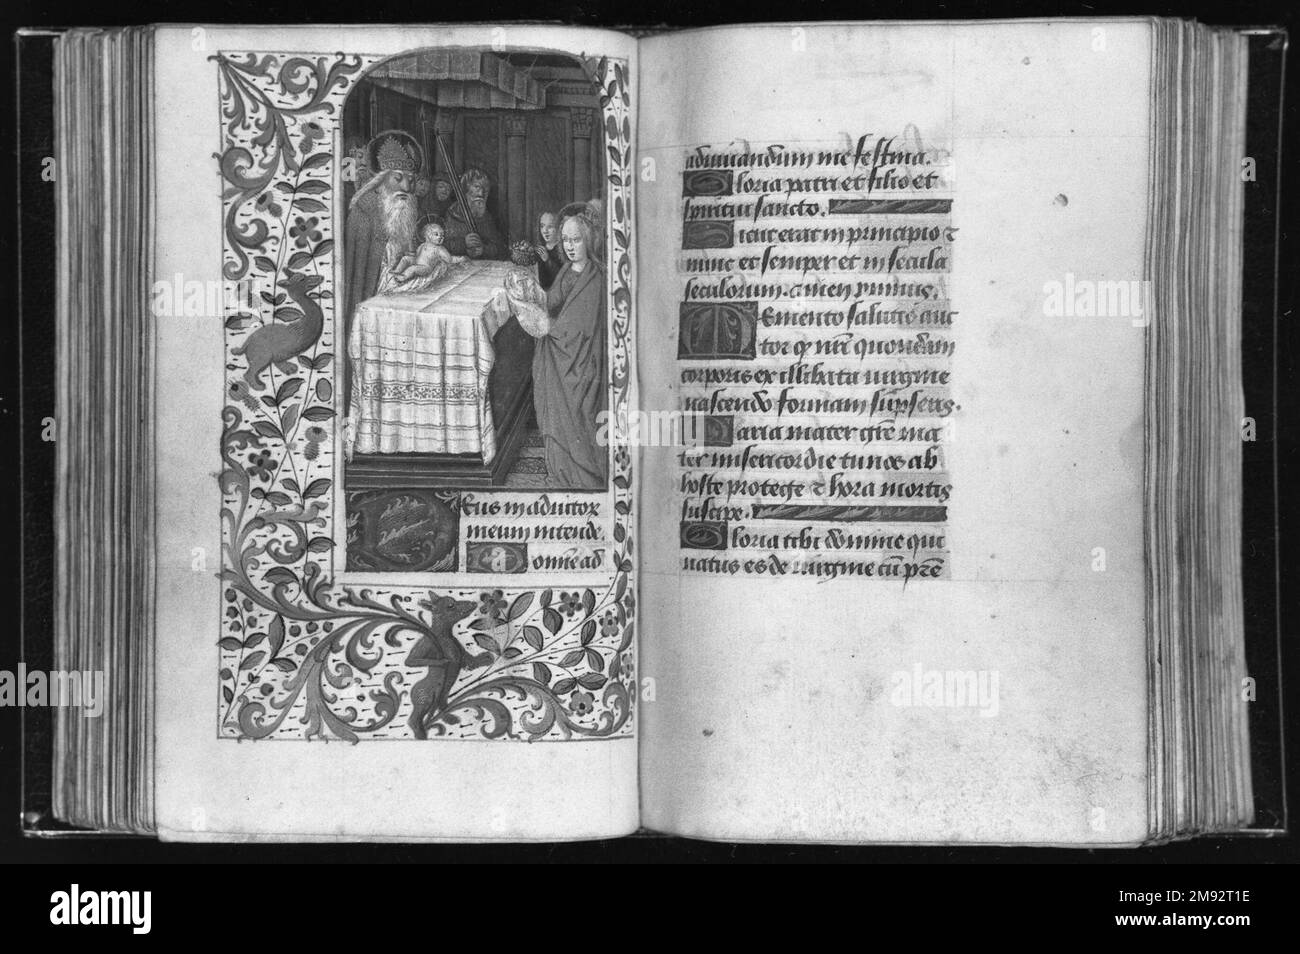 Eus in adiutoꝛ
meum intende.
Domīe ad
adiuuandum me festina.
Gloria patri et filio et
spiritui sancto.
Sicut erat in principio ⁊
nunc et semper et in secula
seculorum. amen ymnus.
Memento salutis auc
tor ꝙ nr̄i quondam
corporis ex illibata uirgine
nascendo formam sumpseris.
Maria mater gr̄e ma
ter misericordie tu nos ab
hoste protege ⁊ hora mortis
suscipe.
Gloria tibi domine qui
natus es de uirgine cū pr̄e
alamy
alamy
Image ID: 2M92T1E
www.alamy.com